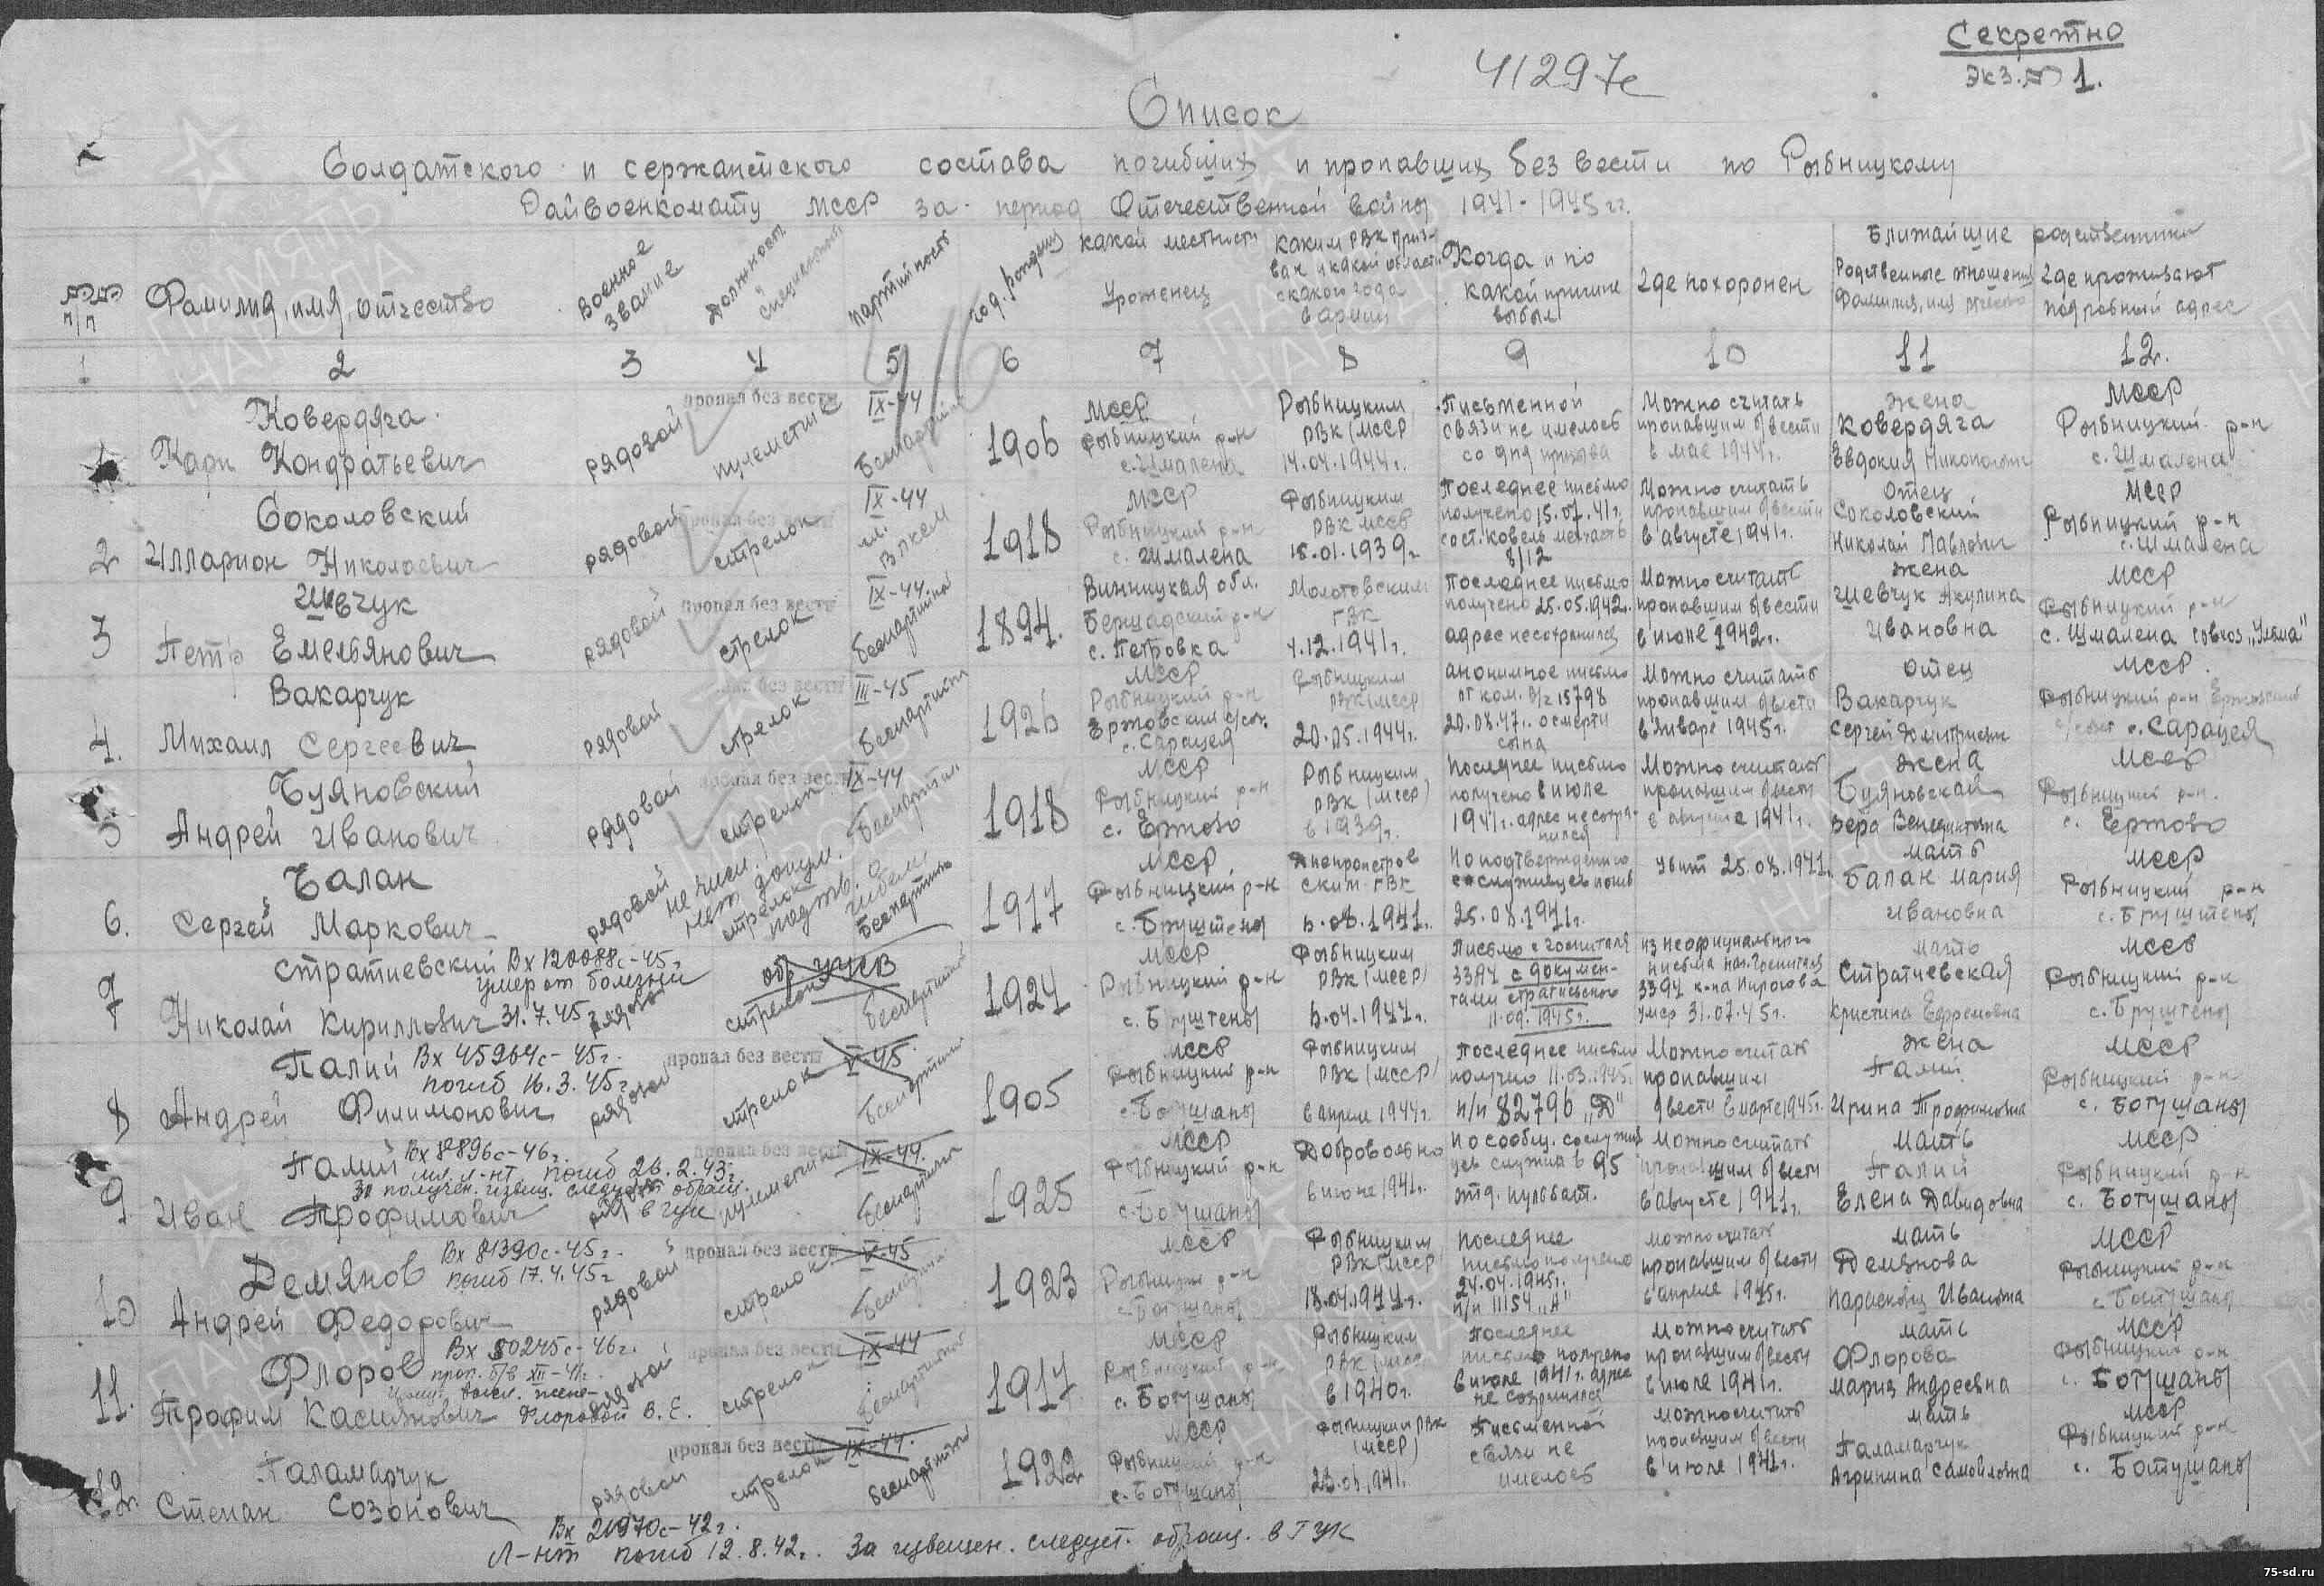 Секретно
Экз. № 1.
41297с
Список
Солдатского и сержантского состава погибших и пропавших без вести по Рыбницкому
Райвоенкомату МССР за период Отечественной войны 1941-1945 гг.
№№ п/п
Фамилия, имя, отчество
Военное звание
Должность и специальность
партийность
год рождения
какой местности
Уроженец
Каким РВК призван и какой области
с какого года в армии
Когда и по какой причине выбыл
Где похоронен
Ближайшие родственники
Родственные отношения фамилия, имя отчество
Где проживают подробный адрес
1 2 3 4 5 6 7 8 9 10 11 12.
1
Ковердяга
Карп Кондратьевич
рядовой
пропал без вести
IX-44
пулеметчик
беспартийн
1906
МССР
Рыбницкий р-н
с. Шмалена
Рыбницким
РВК (МССР)
14.04.1944г.
Письменной
связи не имелось
со дня призыва
Можно считать
пропавшим б/вести
в мае 1944г.
жена
Ковердяга
Евдокия
МССР
Рыбницкий р-н
с. Шмалена
2
Соколовский
Илларион Николаевич
рядовой
пропал без вести
IX-44
стрелок
чл. ВЛКСМ
1918
МССР
Рыбницкий р-н
с. Шмалена
Рыбницким
РВК МССР
15.01.1939г.
Последнее письмо
получено 15.07.41г.
8/12
Можно считать
пропавшим б/вести
в августе 1941г.
Отец
Соколовский
Николай Павлович
МССР
Рыбницкий р-н
с. Шмалена
3
Шевчук
Петр Емельянович
рядовой
пропал без вести
IX-44
стрелок
беспартийный
1894.
Винницкая обл.
Бершадский р-н
с. Петровка
Молотовским
ГВК
4.12.1941г.
Последнее письмо
получено 25.05.1942г.
адрес не сохранился
Можно считать
пропавшим б/вести
в июле 1942г.
жена
Шевчук Акулина
Ивановна
МССР
Рыбницкий р-н
с. Шмалена совхоз
4.
Вакарчук
Михаил Сергеевич
рядовой
без вести
III-45
стрелок
беспартийн
1926
МССР
Рыбницкий р-н
Ержовский с/сов.
с. Сарацея
Рыбницким
РВК (МССР
20.05.1944г.
анонимное письмо
от ком. в/ч 15798
20.08.47г. о смерти
сына
Можно считать
пропавшим б/вести
в январе 1945г.
отец
Вакарчук
Сергей Дмитриевич
МССР
Рыбницкий р-н Ержовский
с/совет с. Сарацея
5
Буяновский
Андрей Иванович
рядовой
пропал без вести
IX-44
стрелок
беспартийн
1918
МССР
Рыбницкий р-н
с. Ержово
Рыбницким
РВК (МССР)
в 1939г.
Последнее письмо
получено в июле
1941г. адрес не сохра-
нился
Можно считать
пропавшим б/вести
в августе 1941г.
жена
Буяновская
Вера
МССР
Рыбницкий р-н.
с. Ержово
6.
Балан
Сергей Маркович
рядовой
не числ.
нет докум.
стрелок
подтв. о гибели
беспартийн
1917
МССР
Рыбницкий р-н
с. Бруштены
Днепропетров
ским ГВК
5.08.1941г.
По подтверждению
сослуживцев погиб
25.08.1941г.
Убит 25.08.1941г.
мать
Балан Мария
Ивановна
МССР
Рыбницкий р-н
с. Бруштены
7
Стратиевский Вх 120088с-45г.
умер от болезни
Николай Кириллович 31.7.45г.
рядовой
стрелок
беспартийный
1924
МССР
Рыбницкий р-н
с. Бруштены
Рыбницким
РВК (МССР)
5.04.1944г.
Письмо с госпиталя
3394 с докумен-
тами Стратиевского
11.09.1945г.
из неофициального
письма нач. госпиталя
3394
умер 31.07.45г.
мать
Стратиевская
Кристина Ефремовна
МССР
Рыбницкий р-н
с. Бруштены
8
Палий Вх 45964с-45г.
погиб 16.3.45г.
Андрей Филимонович
рядовой
пропал без вести
V-45
стрелок
беспартийн
1905
МССР
Рыбницкий р-н
с. Ботушаны
Рыбницким
РВК (МССР)
в апреле 1944г.
Последнее письмо
получено 11.03.1945.
п/п 82796 „Д"
Можно считать
пропавшим
б/вести в марте 1945г.
жена
Палий
Ирина Трофимовна
МССР
Рыбницкий р-н
с. Ботушаны
9
Палий Вх 8896с-46г.
мл. л-нт погиб 26.2.43г.
За получен. извещ. следует обращ.
в ГУК
Иван Трофимович
пропал без вести
IX-44.
пулеметчик
беспартийн
1925
МССР
Рыбницкий р-н
с. Ботушаны
Добровольно
в июле 1941г.
По сообщ. сослужив
цев служил в 95
отд. пульбат.
Можно считать
пропавшим б/вести
в августе 1941г.
мать
Палий
Елена Давидовна
МССР
Рыбницкий р-н
с. Ботушаны
10
Демянов Вх 81390с-45г.
погиб 17.4.45г
Андрей Федорович
рядовой
пропал без вести
V-45
стрелок
беспартийн
1923
МССР
Рыбницкий р-н
с. Ботушаны
Рыбницким
РВК (МССР)
18.04.1944г.
Последнее
письмо получено
24.04.1945г.
п/п 11154 „А"
можно считать
пропавшим б/вести
в апреле 1945г.
мать
Демянова
Парасковья Ивановна
МССР
Рыбницкий р-н
с. Ботушаны
11.
Флоров Вх 80245с-46г.
проп. б/в XII-41г.
извещ. высл. жене-
Трофим Касиянович Флоровой В. Е.
рядовой
пропал без вести
IX-44
стрелок
беспартийный
1917
МССР
Рыбницкий р-н
с. Ботушаны
Рыбницким
РВК (МССР
в 1940г.
Последнее
письмо получено
в июле 1941г. адрес
не сохранился
Можно считать
пропавшим б/вести
в июле 1941г.
мать
Флорова
Мария Андреевна
МССР
Рыбницкий р-н
с. Ботушаны
12.
Паламарчук
Степан Созонович
рядовой
пропал без вести
IX-44.
стрелок
беспартийный
1922
МССР
Рыбницкий р-н
с. Ботушаны
Рыбницким РВК
(МССР)
Письменной
связи не
имелось
можно считать
пропавшим б/вести
в июле 1941г.
мать
Паламарчук
Агрипина Самойловна
МССР
Рыбницкий р-н
с. Ботушаны
Вх 21970с-42г.
Л-нт погиб 12.8.42г. За извещен. следует. обращ. в ГУК
75-sd.ru